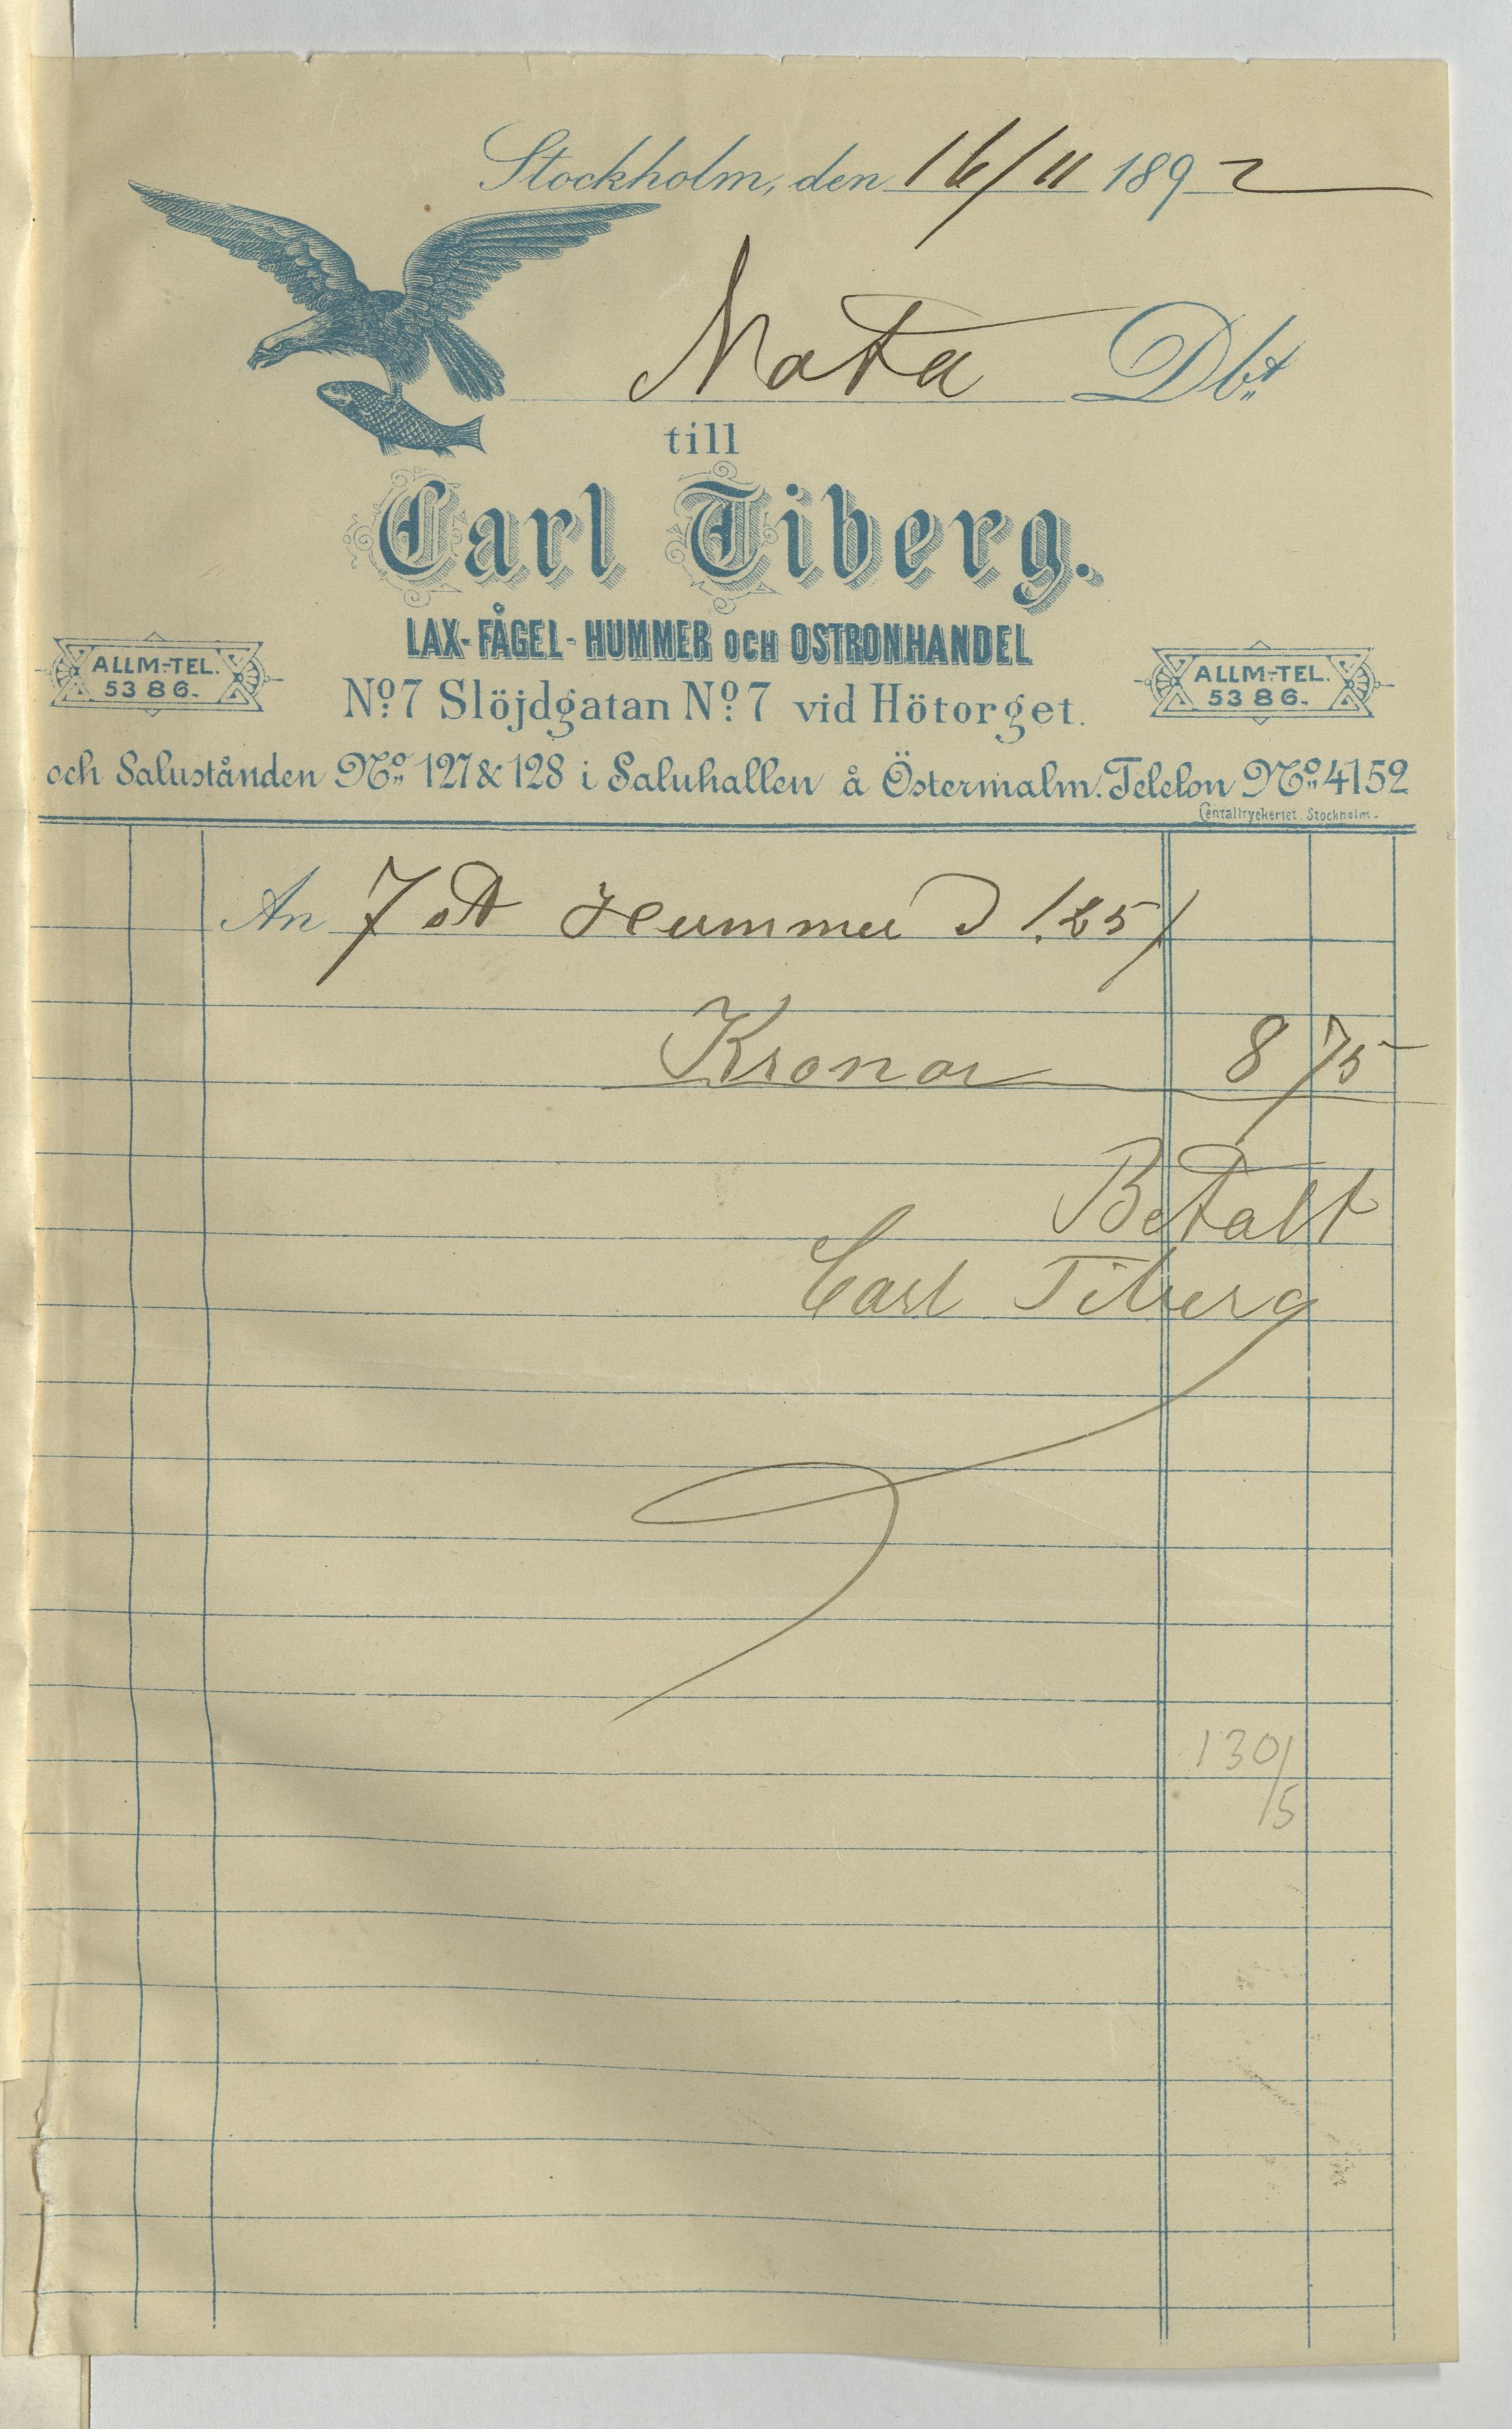 Stockholm, den 16/11 1892
Nota Dbt
till
Carl Tiberg.
LAX-FÅGEL-HUMMER OCH OSTRONHANDEL
ALLM-TEL. 5386.
ALLM-TEL. 5386.
No 7 Slöjdgatan No 7 vid Hötorget.
och Salustånden No 127 & 128 i Saluhallen å Östermalm. Telefon No 4152
Centraltryckeriet. Stockholm.
An 7 st Hummer à 1.25
Kronor 8 75
Betalt
Carl Tiberg
130/5